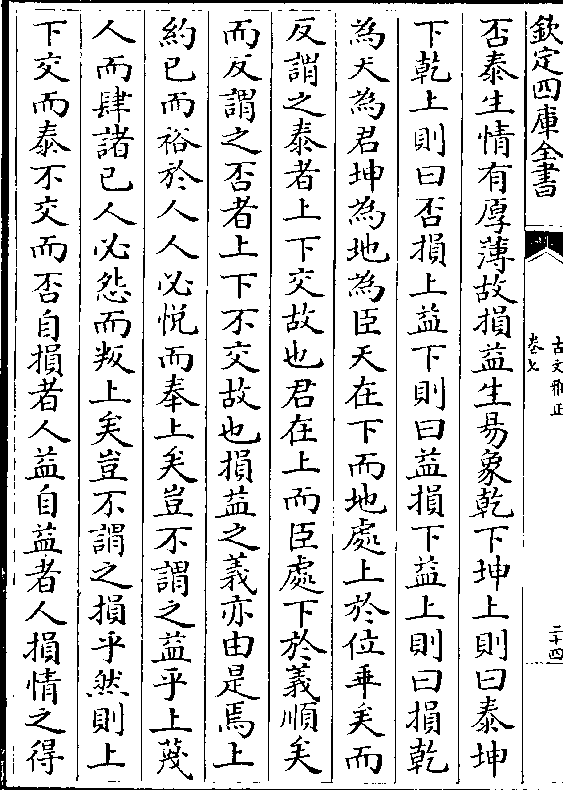 欽定四庫全書
古文雅正
卷七
二十四
否泰生情有厚薄故損益生易象乾下坤上則曰泰坤
下乾上則曰否損上益下則曰益損下益上則曰損乾
為天為君坤為地為臣天在下而地處上於位乖矣而
反謂之泰者上下交故也君在上而臣處下於義順矣
而反謂之否者上下不交故也損益之義亦由是焉上
約已而裕於人人必悅而奉上矣豈不謂之益乎上蔑
人而肆諸已人必怨而叛上矣豈不謂之損乎然則上
下交而泰不交而否自損者人益自益者人損情之得